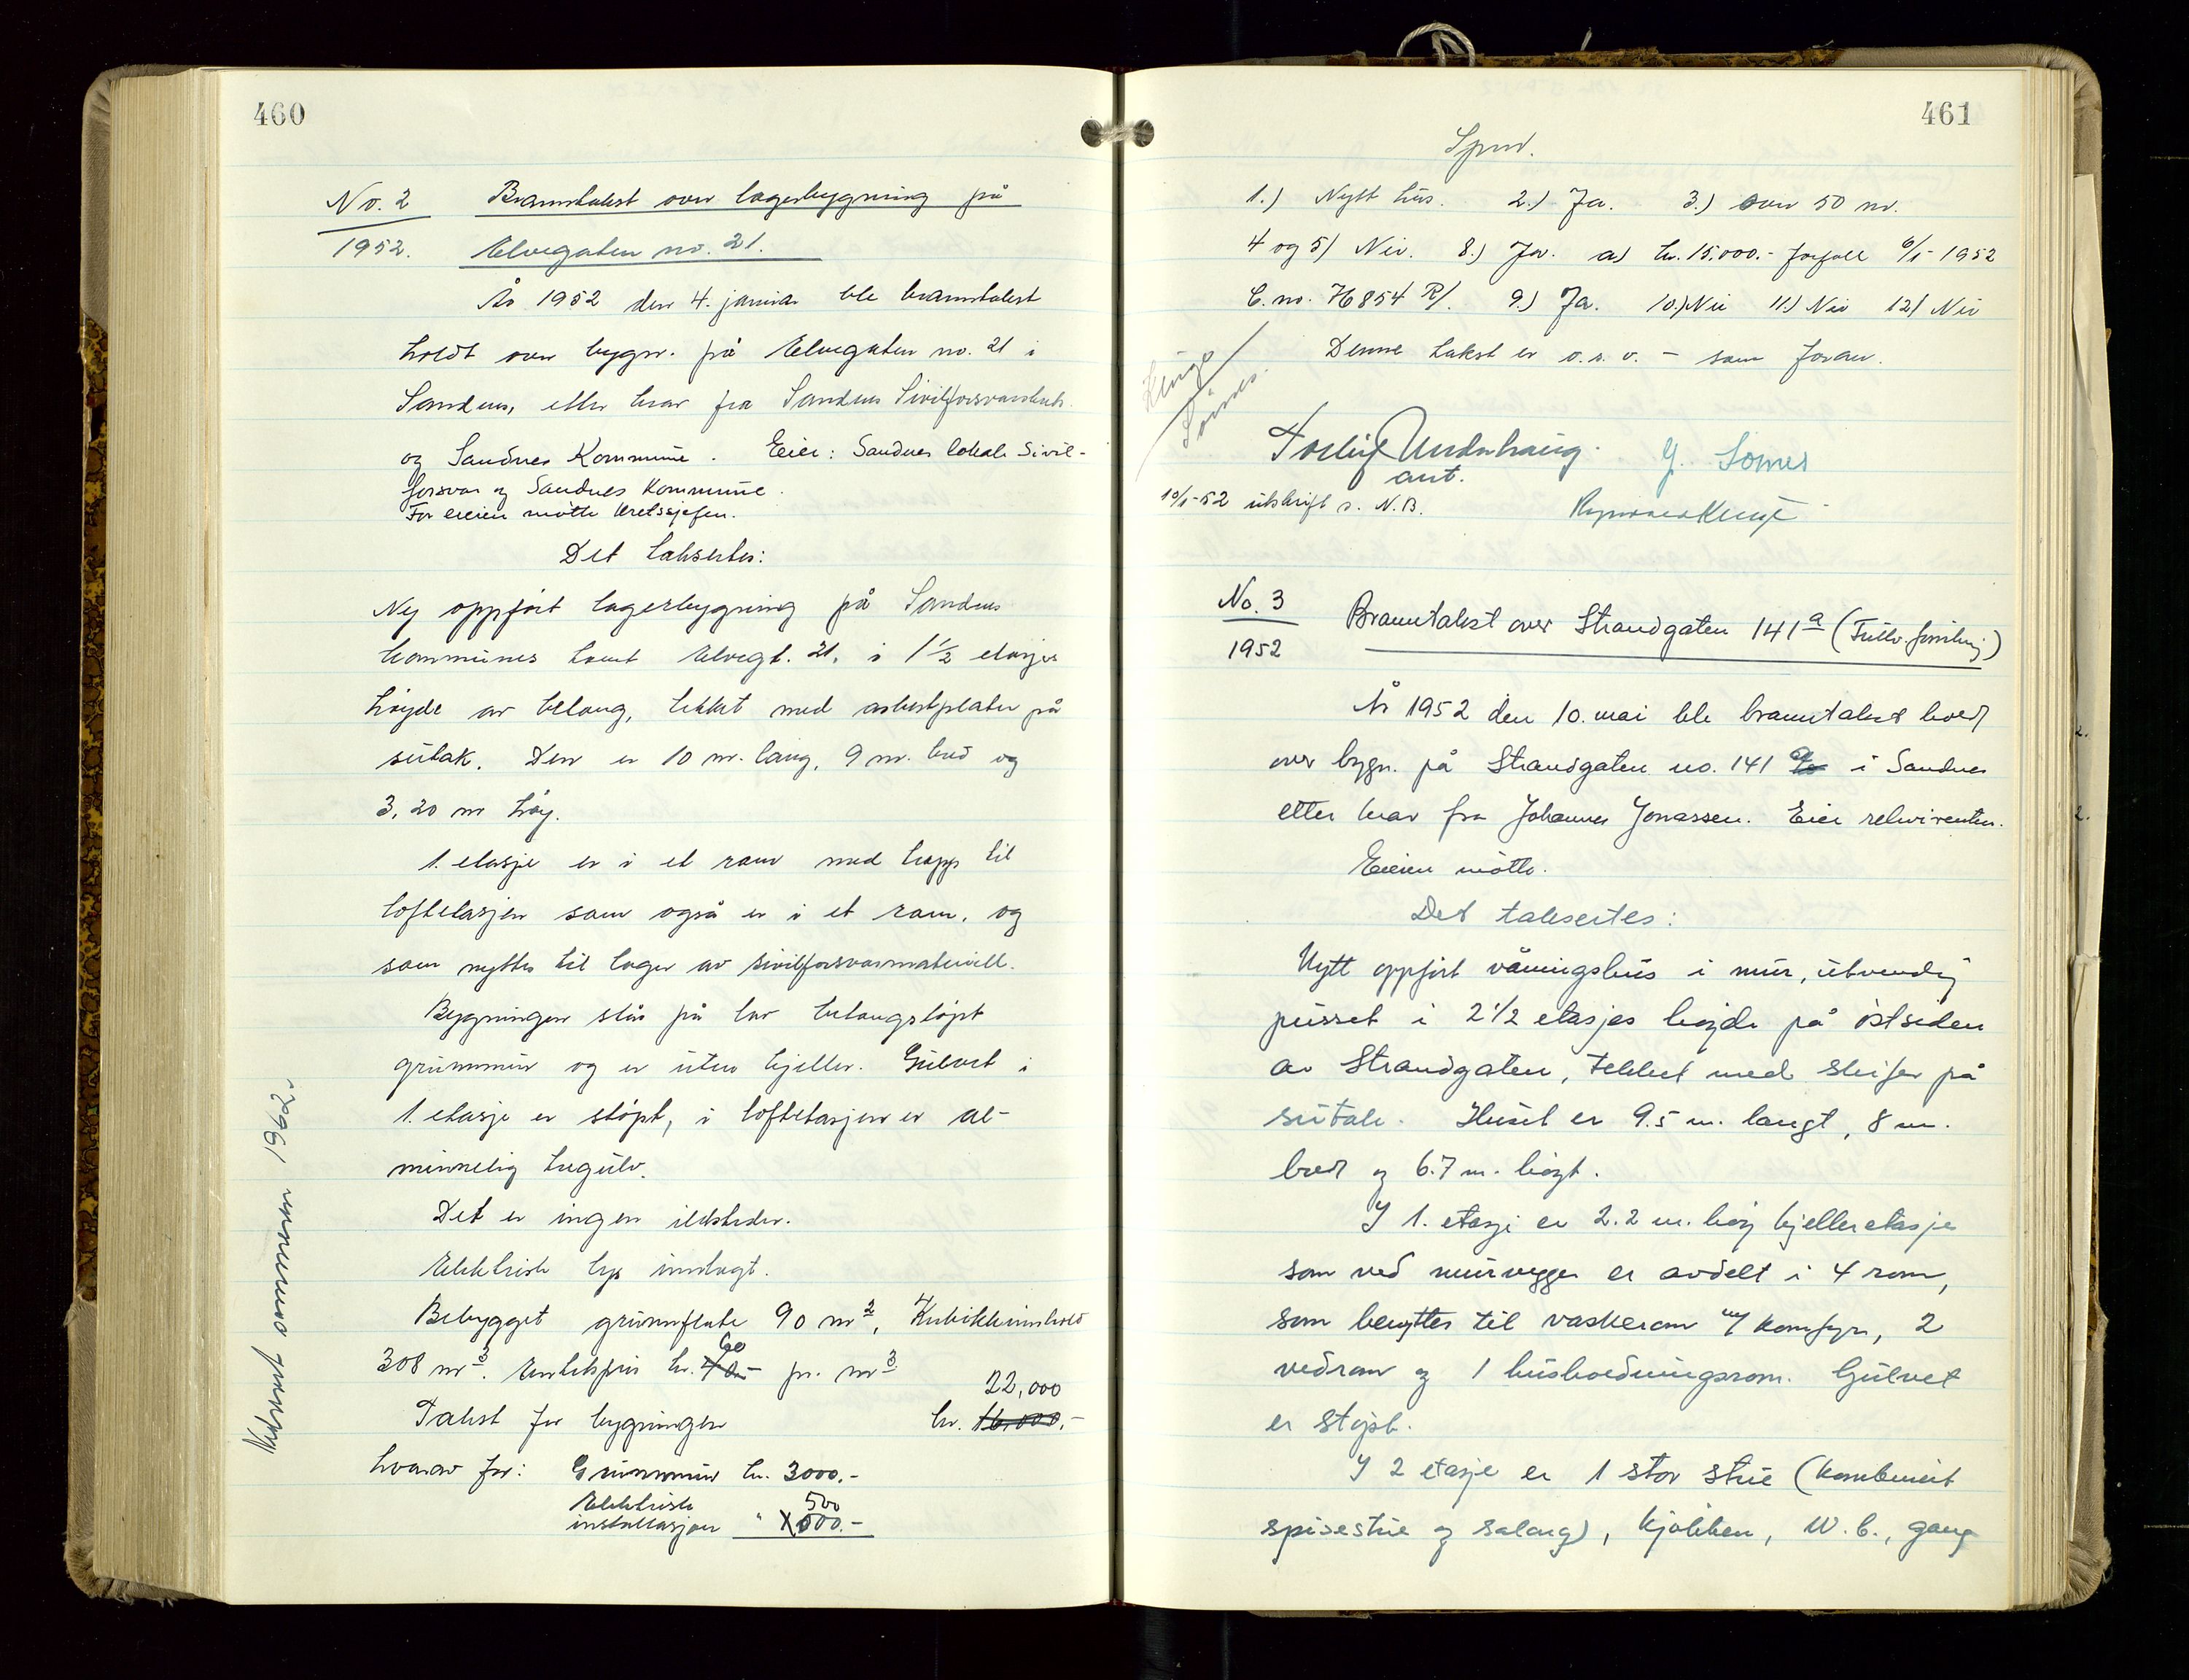 460
No. 2
1952.
Branntakst over lagerbygning på
Elvegaten no. 21.
År 1952 den 4. januar ble branntakst
holdt over bygn. på Elvegaten no. 21 i
Sandnes, etter krav fra Sandnes Sivilforsvarskrets
og Sandnes Kommune. Eier: Sandnes lokale Sivil-
forsvar og Sandnes Kommune.
For eieren møtte kretssjefen.
Det taksertes:
Ny oppført lagerbygning på Sandnes
kommunes tomt Elvegt. 21, i 1 1/2 etasjes
høyde av betong, tekket med asbestplater på
sutak. Den er 10 m. lang, 9 m. bred og
3,20 m høy.
1. etasje er i et rom med trapp til
loftetasjen som også er i et rom, og
som nyttes til lager av sivilforsvarsmateriell.
Bygningen står på lav betongstøpt
grunnmur og er uten kjeller. Gulvet i
1. etasje er støpt, i loftetasjen er al-
minnelig tregulv.
Det er ingen ildsteder.
Elektrisk lys innlagt.
Bebygget grunnflate 90 m2, Kubikkinnhold
308 m3. Enhetspris kr. 60 pr. m3
22,000
Takst for bygningen kr. 16.000.-
hvorav for: Grunnmur kr. 3000.-
500
Elektrisk
installasjon " 1000.-
Nyford. ommune 1962.
461
Spm.
1.) Nytt hus. 2.) Ja. 3.) over 50 m.
4 og 5) Nei. 8.) Ja. a) kr. 15.000.- forfall 6/1-1952
C. no. 76854 R/. 9.) Ja. 10.) Nei 11.) Nei 12) Nei
Denne takst er o.s.v. - som foran.
Kluge
Sømes.
Torleif Underhaug. G. Sømes
ant.
10/1-52 utskrift s. N.B. Kluge
No. 3
1952
Branntakst over Strandgaten 141a (Fullv. forsikring)
År 1952 den 10. mai ble branntakst hold
over bygn. på Strandgaten no. 141 a i Sandnes
etter krav fra Johannes Jonassen. Eier rekvirenten.
Eieren møtte.
Det taksertes:
Nytt oppført våningshus i mur, utvendig
pusset i 2 1/2 etasjes høyde på østsiden
av Strandgaten, tekket med skifer på
sutak. Huset er 9.5 m. langt, 8 m.
bred og 6.7 m. høyt.
I 1. etasje er 2.2 m. høy kjelleretasje
som ved murvegger er avdelt i 4 rom,
som benyttes til vaskerom m/ komfyr, 2
vedrom og 1 husholdningsrom. Gulvet
er støpt.
I 2 etasje er 1 stor stue (kombinert
spisestue og salong), kjøkken, W.C., gang